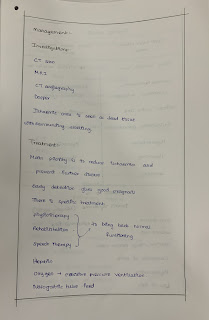 Management:-
Investigations:-
CT scan
MRI
CT angiography
Doppler
Ischaemic area is seen as dead tissue
with surrounding swelling
Treatment:-
Main priority is to reduce and
prevent further disease
Early detection gives good prognosis
There is specific treatment
Physiotherapy
Rehabilitation to bring back normal
functioning
Speech therapy
Heparin
Oxygen → pressure ventilation
Nasogastric tube feed